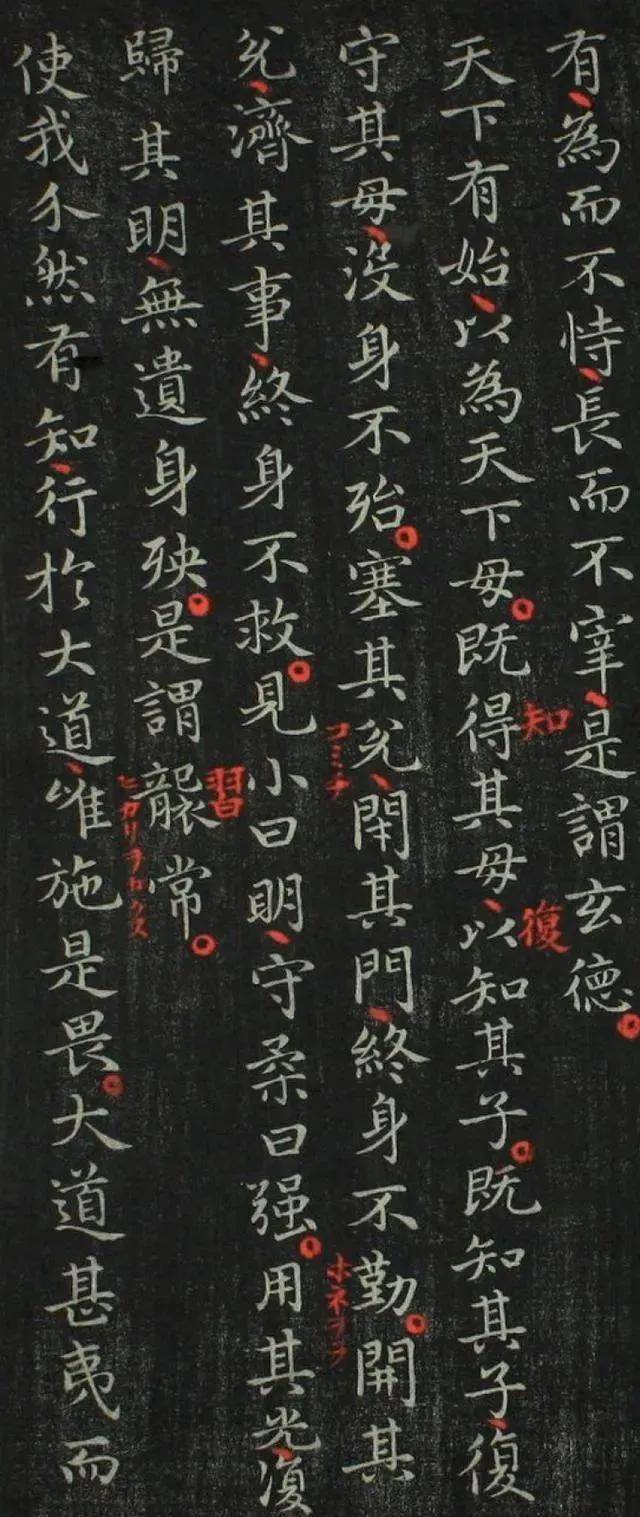 有、為而不恃、長而不宰、是謂玄德。
知
復
天下有始、以為天下母。既得其母、以知其子。既知其子、復
守其母、沒身不殆。塞其兌、閇其門、終身不勤。開其
コミチ
ホネヲヲ
兌、濟其事、終身不救。見小曰明、守柔曰强。用其光、復
習
歸其明、無遺身殃。是謂襲常。
ヒカリヲカクス
使我介然有知、行於大道、唯施是畏。大道甚夷而